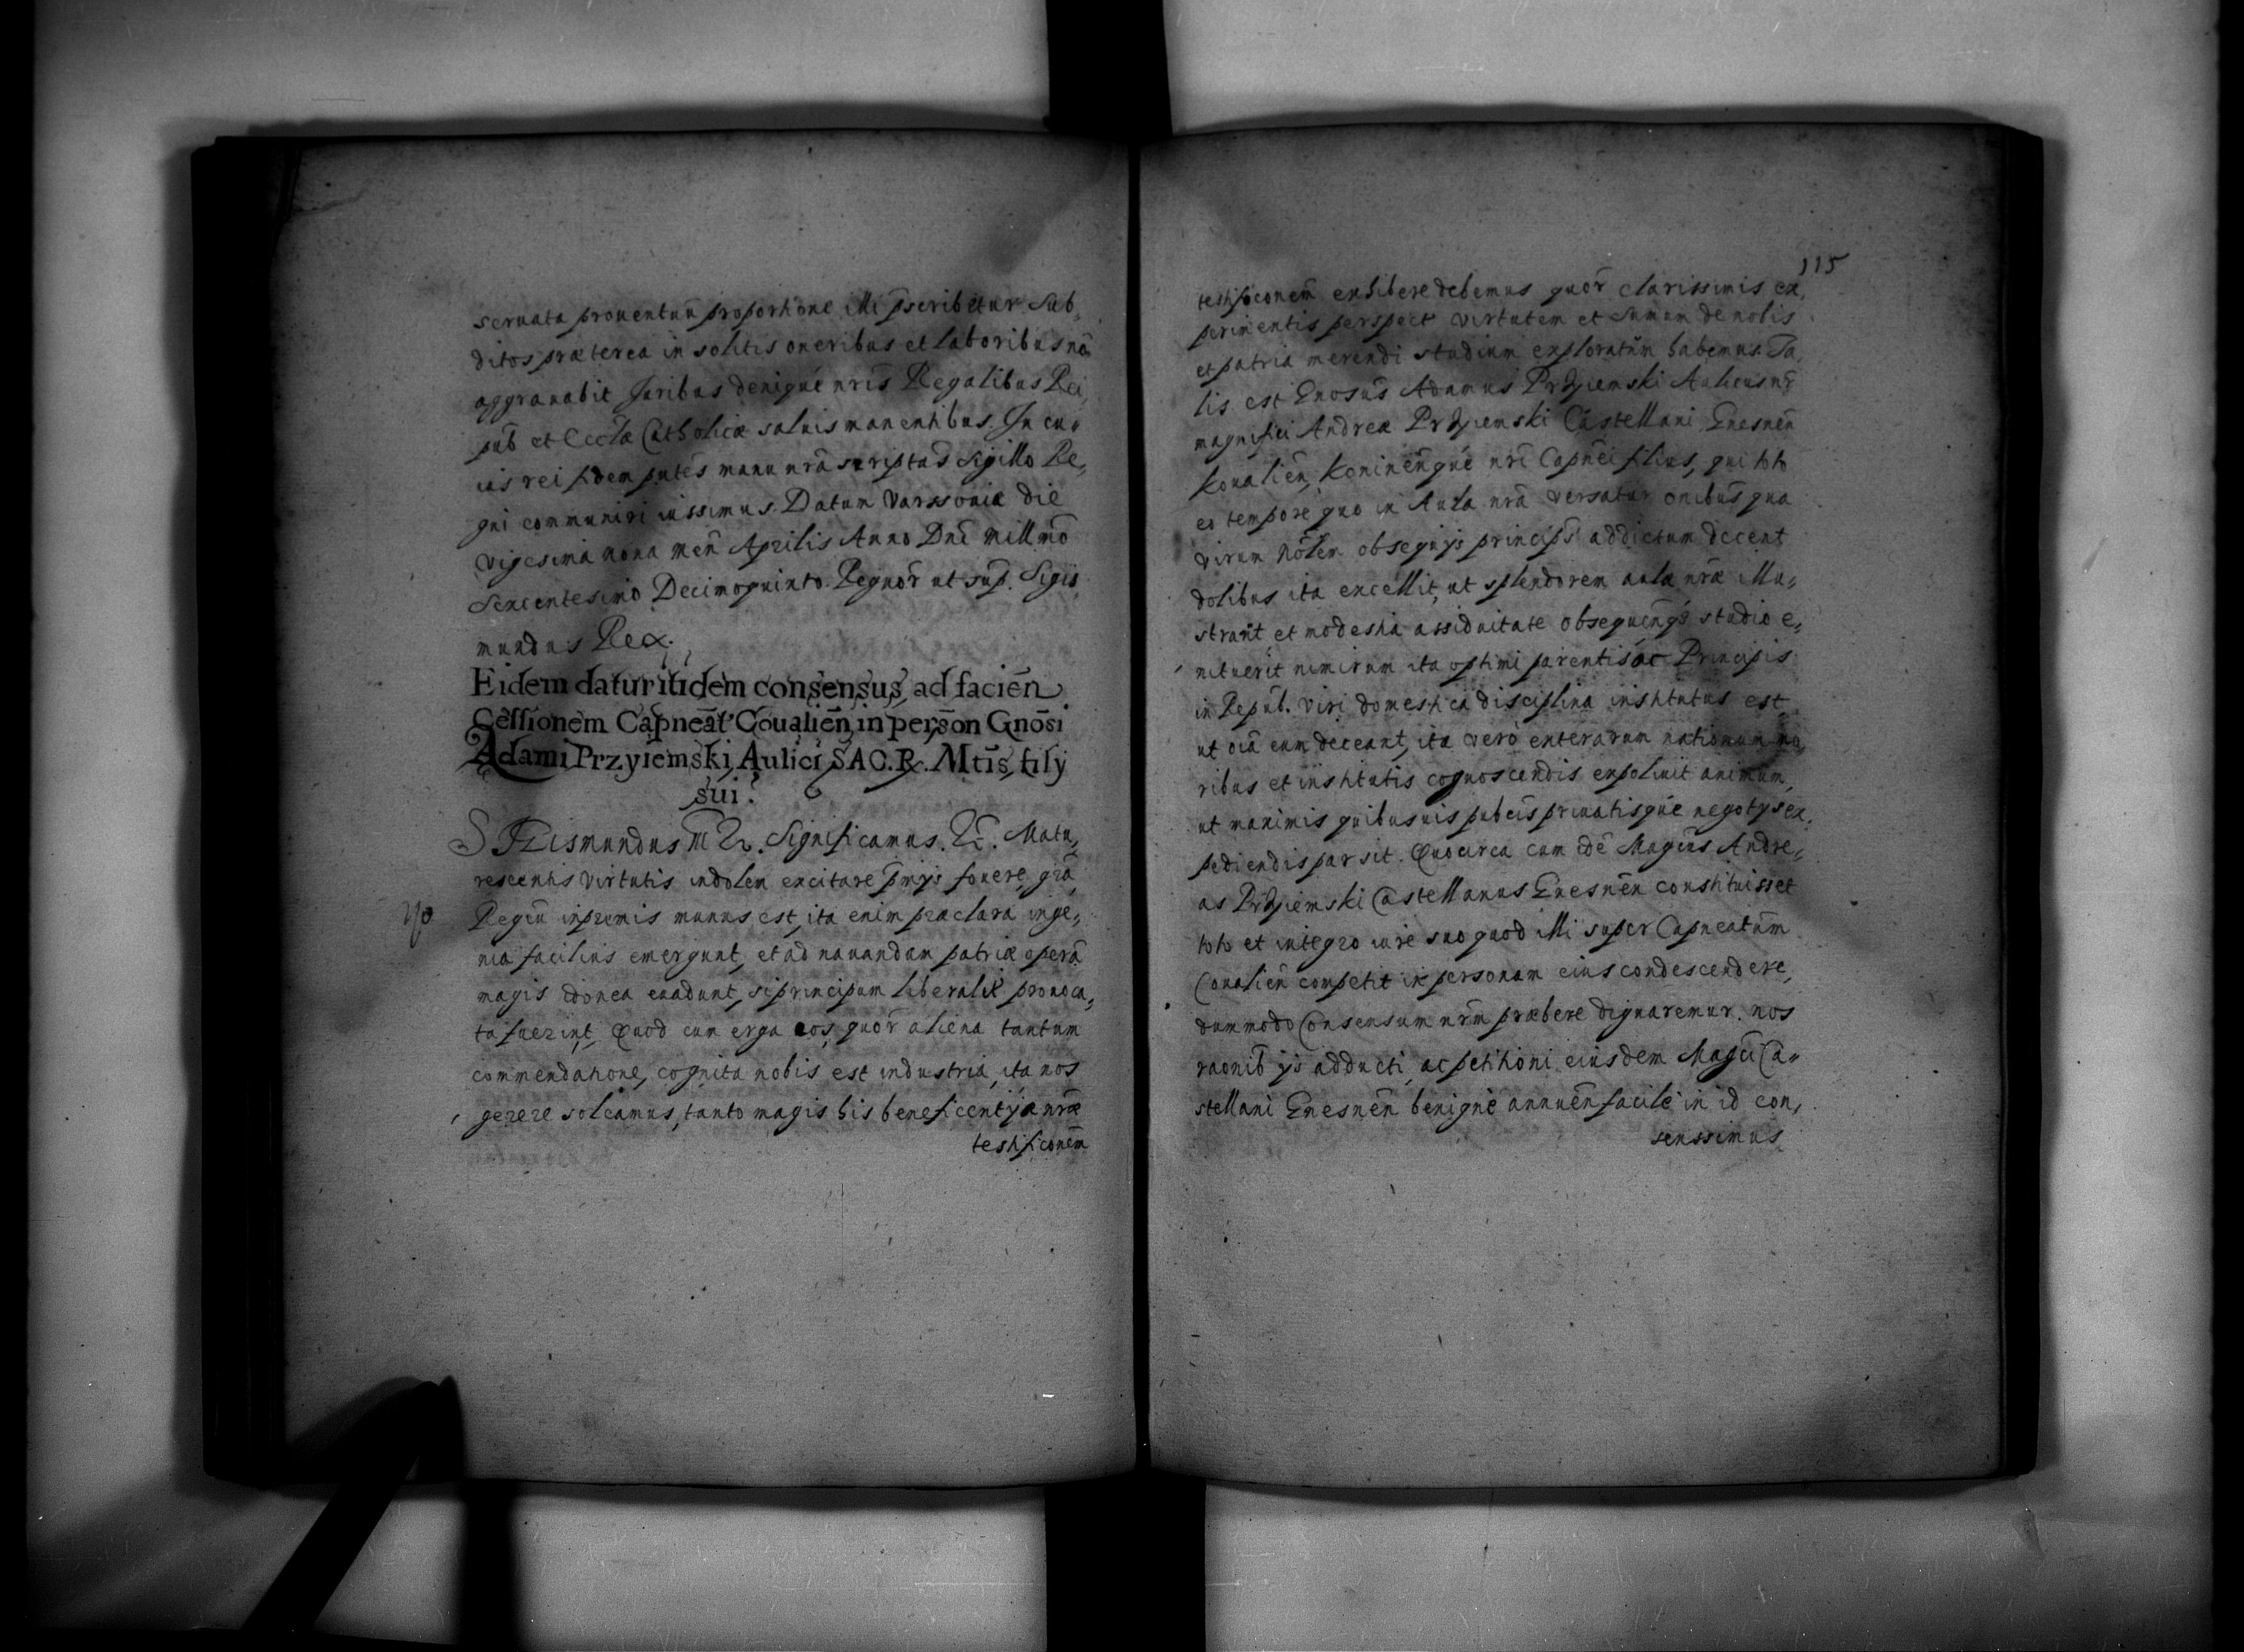 seruata prouentuũ proportione illi p̃scribetur Sub,
ditos præterea in solitis oneribus et laboribus nõ
aggrauabit Juribus deniqué nris̃ Regalibus Rei,
pub̃ et Ecclæ̃ Catholicæ saluis manentibus. In cu,
ius rei fidem p̃ntes manu nrã scriptas Sigillo Re,
gni communiri iussimus. Datum Varssouiæ die
vigesima nona Men̄ Aprilis Anno Dnĩ Millm̃o
Sexcentesimo Decimoquinto. Regnor̃ ut sup̃. Sigis,
mundus Rex.
Eidem datur itidem consensus, ad facien̄
Cessionem Capneãt Coualien̄, in person̄ Gnõsi
Adami Przyiemski, Aulici SAC. R. Mtis̃, filÿ
sui.
SIGismundus III &. Significamus. &. Matu,
rescentis virtutis indolem excitare p̃mÿs fouere, grã,
Regiũ inprimis munus est, ita enim præclara inge,
nia facilius emergunt, et ad nauandam patriæ operã
magis idonea euadunt, si principum liberalit̃ prouoca,
ta fuerint, Quod cum erga eos, quor̃ aliena tantum
commendatione, cognita nobis est industria, ita nos
gerere soleamus, tanto magis his beneficentÿæ nræ̃
testificonẽm
115
testificonẽm exhibere debemus quor̃ clarissimis ex,
perimentis perspect virtutem et summum de nobis
et patria merendi studium exploratũm habemus. Ta,
lis est Gnosus̃ Adamus Przyiemski Aulicus nr̃
magnifici Andreæ Przyiemski Castellani Gnesnen̄
Koualien̄, Koninen̄qué nri Capnei filius, qui toto
eo tempore quo in Aula nrã versatur onibus̃ quæ
virum Nõlem obsequÿs principis̃ addictum decent
dotibus ita excellit, ut splendorem aulæ nræ̃ illu,
strarit et modestia assiduitate obsequenq̃s studio e,
nituerit nimirum ita optimi parentis ac Principis
in Repub̃l. viri domestica disciplina institutus est
ut oiã eum deceant, ita verò exterarum nationum mo,
ribus et institutis cognoscendis expoliuit animum,
ut maximis quibusuis pubcis̃ priuatisqúe negotÿs ex,
pediendis par sit. Quocirca cum idẽ Magcus̃ Andre,
as Przyiemski Castellanus Gnesnen̄ constituisset
toto et integro iure suo quod illi super Capneatũm
Coualien̄ competit in personam eius condescendere,
dummodo Consensum nrm̃ præbere dignaremur. nos
raonib̃ ÿs adducti, ac petitioni eiusdem Magci Ca,
stellani Gnesnen̄ benignè annuen̄ facilè in id con,
senssimus